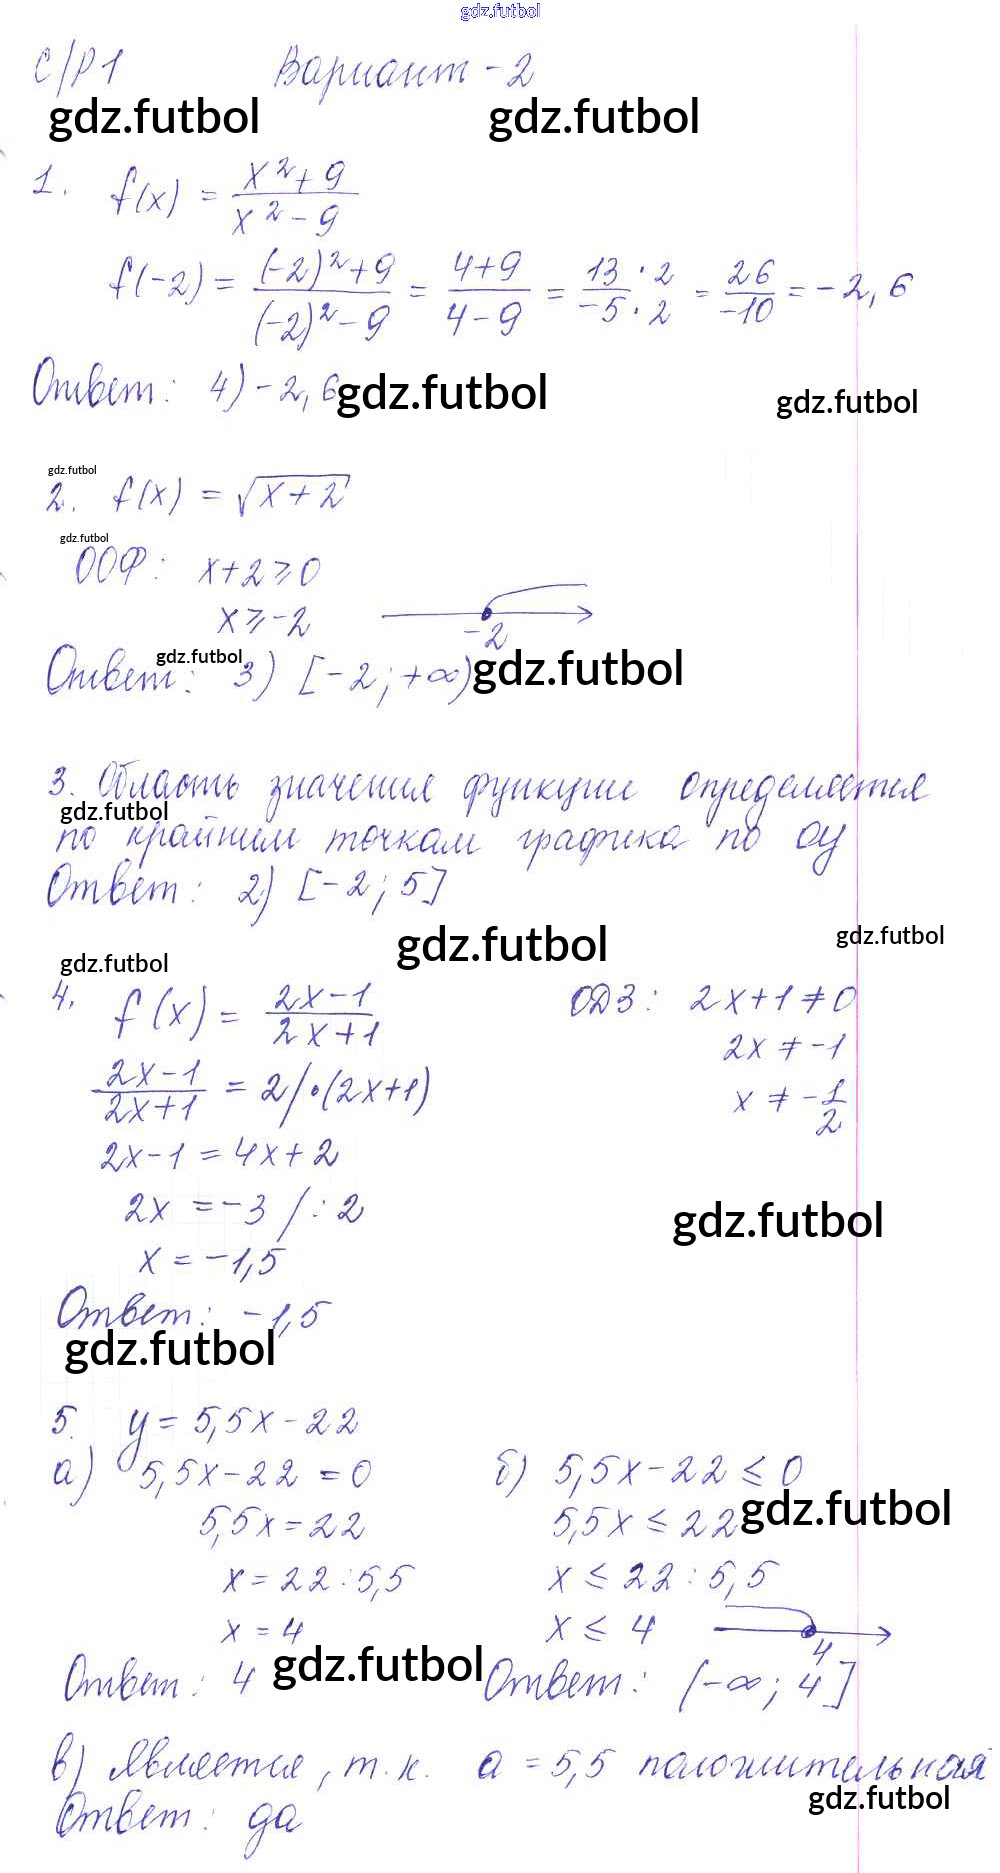 gdz.futbol
С/Р1 Вариант - 2
gdz.futbol gdz.futbol
1. f(x) = (x² + 9)/(x² - 9)
f(-2) = ((-2)² + 9)/((-2)² - 9) = (4+9)/(4-9) = (13 · 2)/(-5 · 2) = 26/-10 = -2,6
Ответ: 4) -2,6
gdz.futbol gdz.futbol
gdz.futbol
2. f(x) = √(x+2)
gdz.futbol
ООФ: x+2 ⩾ 0
x ⩾ -2
-2
Ответ: 3) [-2; +∞)
gdz.futbol gdz.futbol
3. Область значения функции определяется
gdz.futbol
по крайним точкам графика по ОУ
Ответ: 2) [-2; 5]
gdz.futbol gdz.futbol
gdz.futbol
4. f(x) = (2x-1)/(2x+1) ОДЗ: 2x+1 ≠ 0
(2x-1)/(2x+1) = 2 / · (2x+1) 2x ≠ -1
x ≠ -1/2
2x-1 = 4x+2
2x = -3 / : 2
gdz.futbol
x = -1,5
Ответ: -1,5
gdz.futbol
5. y = 5,5x - 22
а) 5,5x - 22 = 0 б) 5,5x - 22 ≤ 0
gdz.futbol
5,5x = 22 5,5x ≤ 22
x = 22 : 5,5 x ≤ 22 : 5,5
x = 4 x ≤ 4
4
Ответ: 4 Ответ: (-∞; 4]
gdz.futbol
в) Является, т.к. а = 5,5 положительная
gdz.futbol
Ответ: да